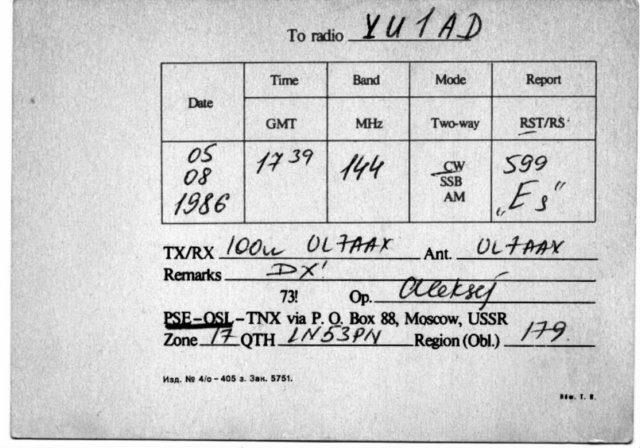 To radio YU1AD
Date Time Band Mode Report
GMT MHz Two-way RST/RS
05 08 1986 1739 144 CW SSB AM 599 „Es”
TX/RX 100w UL7AAX Ant. UL7AAX
Remarks DX!
73! Op. Aleksej
PSE–QSL–TNX via P. O. Box 88, Moscow, USSR
Zone 17 QTH LN53PN Region (Obl.) 179
Изд. № 4/о – 405 з. Зак. 5751.